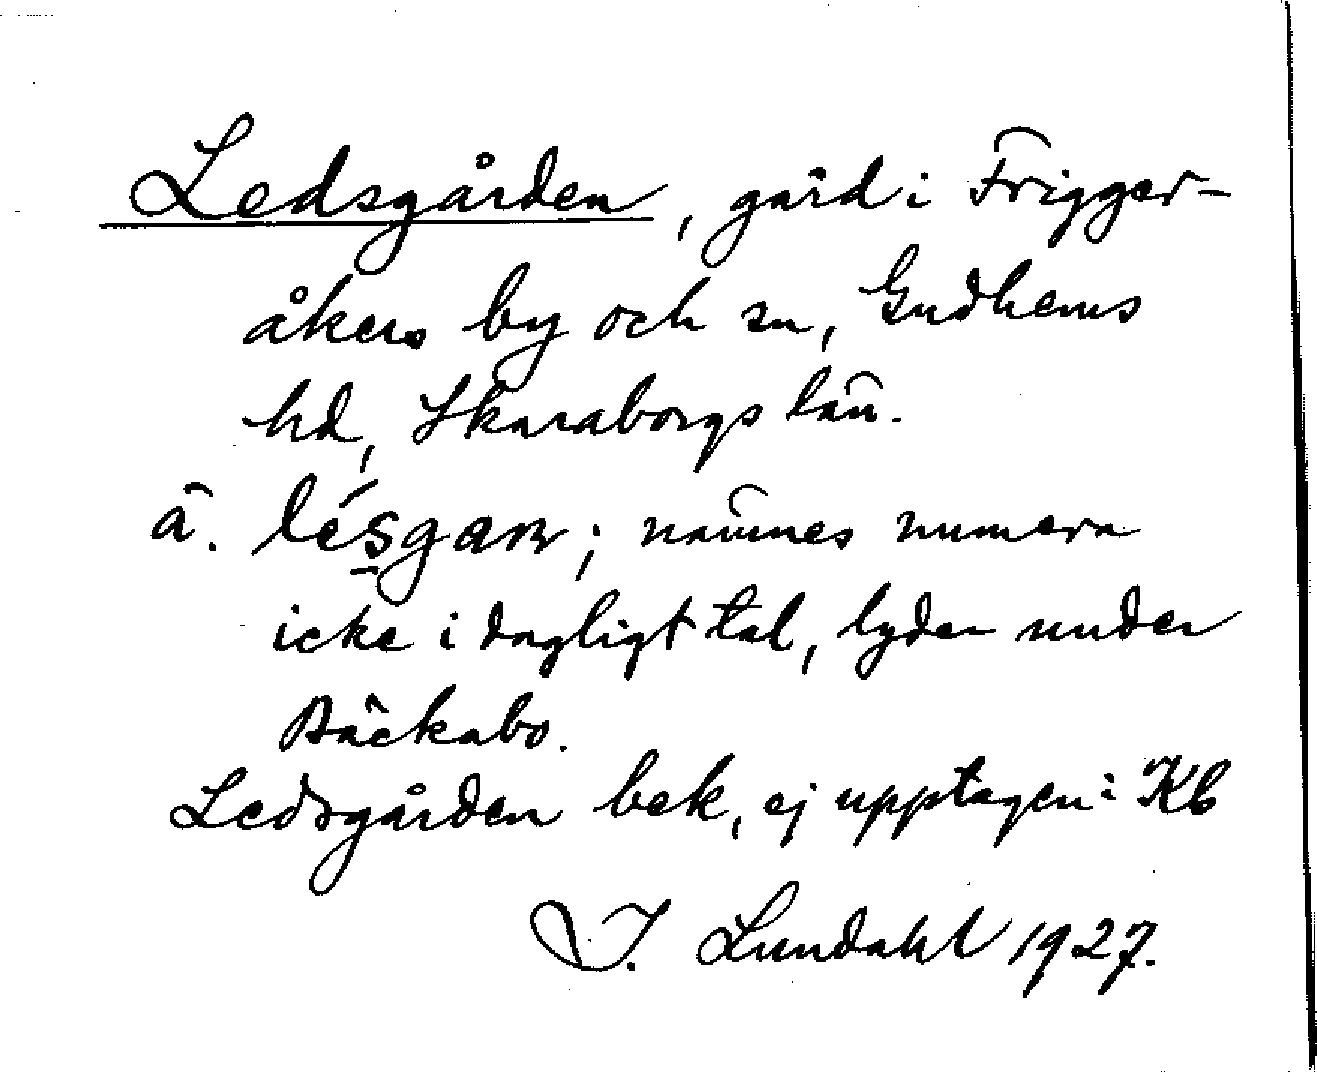 Ledsgården, gård i Frigger-
åkers by och sn, Gudhems
hd, Skaraborgs län.
a. lésgaɴ; nämnes numera
icke i dagligt tal, lyder under
Bäckabo.
Ledsgården bek, ej upptagen i Kb
I. Lundahl 1927.